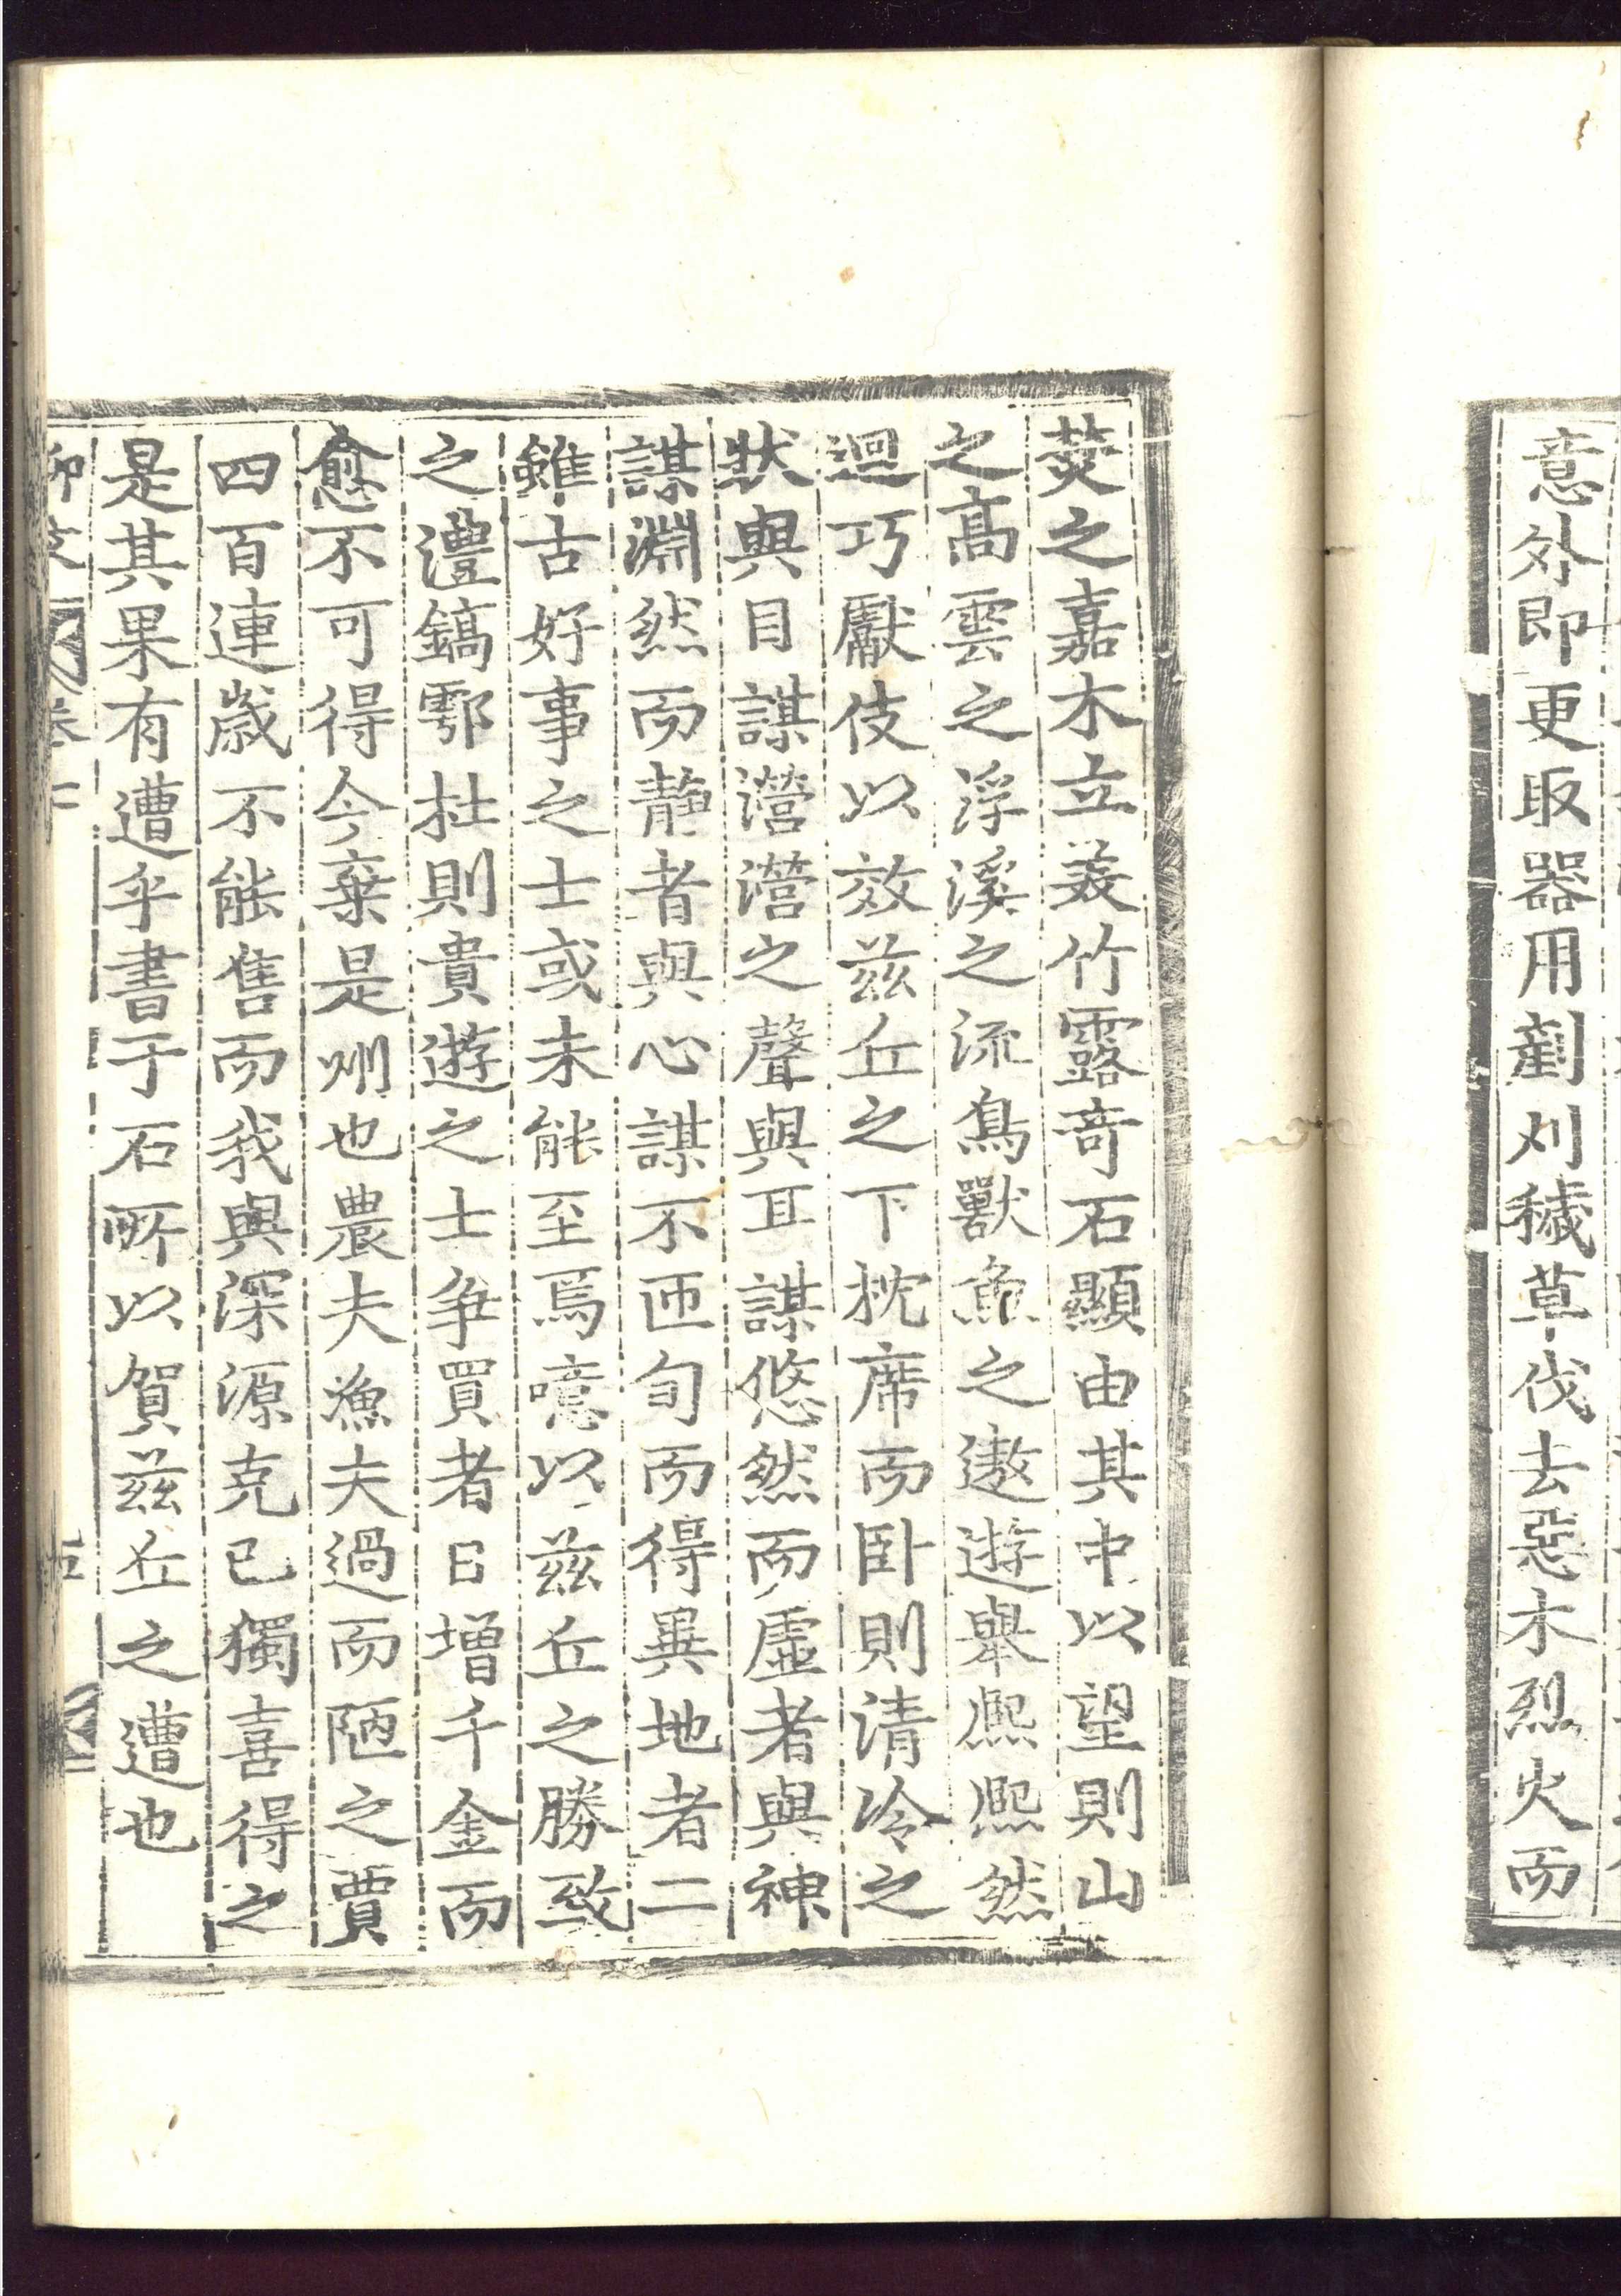 意外即更取器用剷刈穢草伐去惡木烈火而
焚之嘉木立羙竹露竒石顯由其中以望則山
之髙雲之浮溪之流鳥獸魚之遨遊舉熈熈然
迴巧獻伎以效兹丘之下枕席而卧則清泠之
狀與目謀瀯瀯之聲與耳謀悠然而虛者與神
謀淵然而静者與心謀不匝旬而得異地者二
雖古好事之士或未能至焉噫以兹丘之勝致
之灃鎬鄠杜則貴遊之士爭買者日增千金而
愈不可得今棄是州也農夫漁夫過而陋之賈
四百連歲不能售而我與深源克已獨喜得之
是其果有遭乎書于石所以賀兹丘之遭也